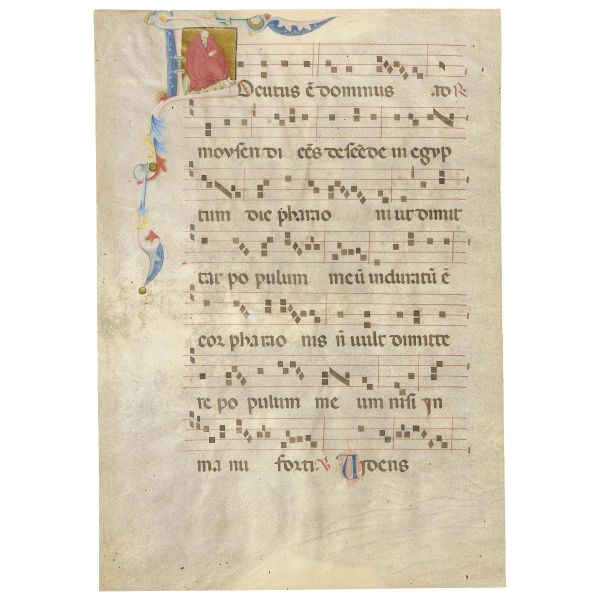 Locutus ē dominus ad
moysen di cēs descēde in egyp
tum dic pharao ni ut dimit
tat po pulum meū induratū ē
cor pharao nis ñ uult dimitte
re po pulum me um nisi in
ma nu forti. Uidens